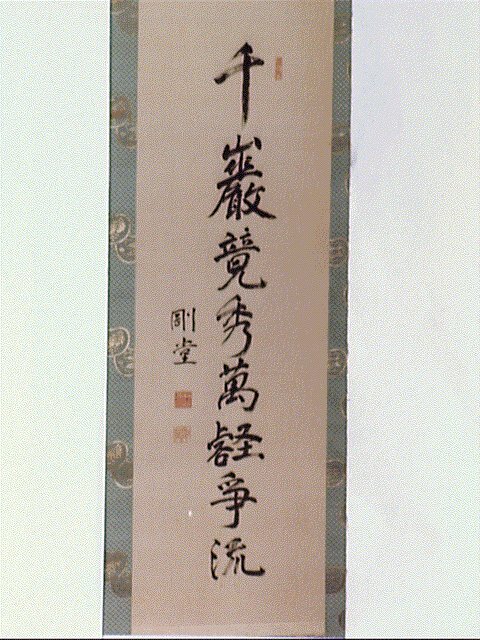 千巖竟秀萬壑爭流
剛堂